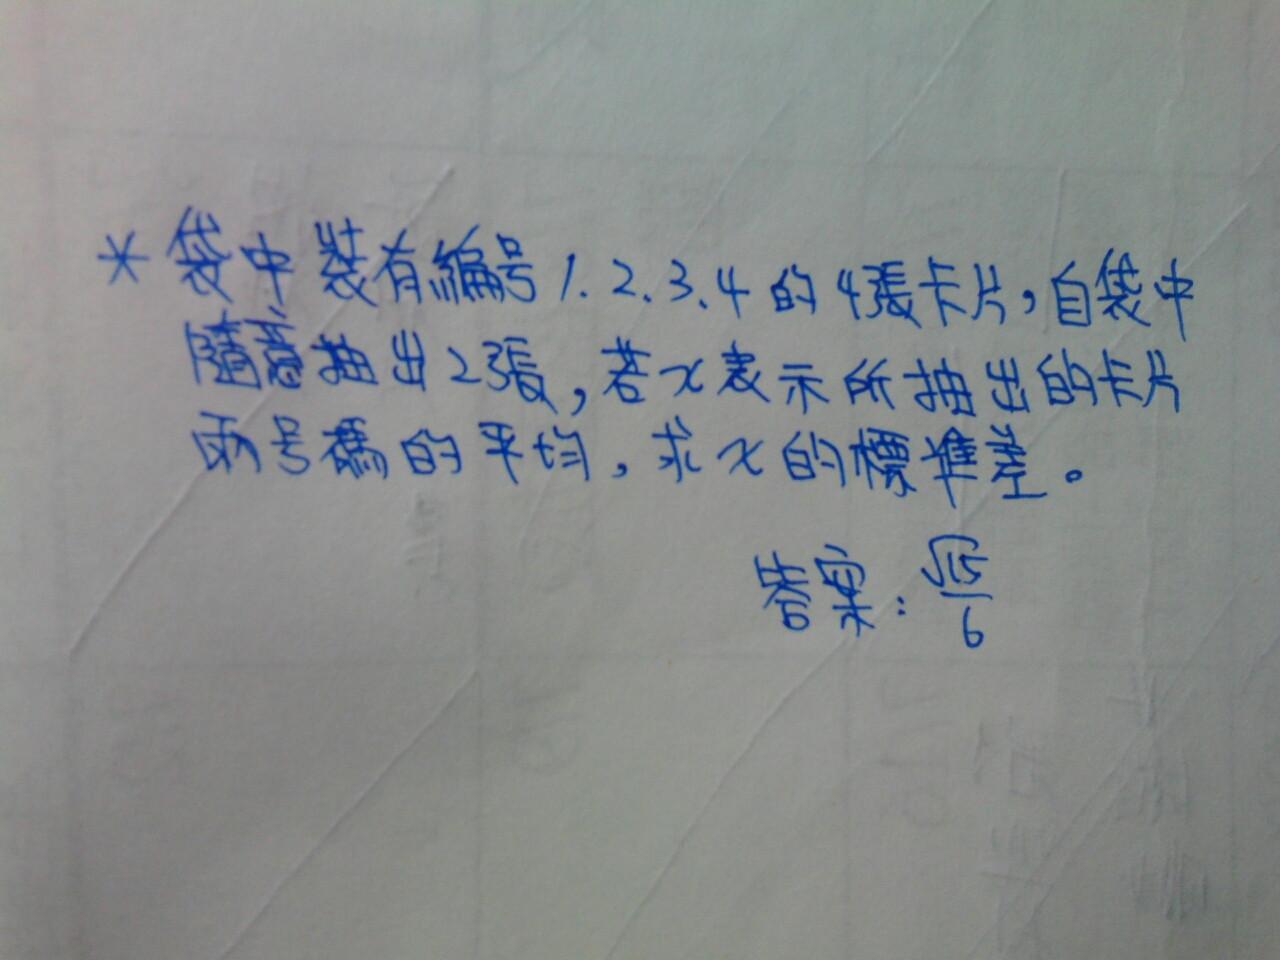 * 袋中裝有編号1.2.3.4的4張卡片,自袋中
隨意抽出2張,若x表示所抽出的卡片
兩号碼的平均,求x的標準差。
答案:√15/6